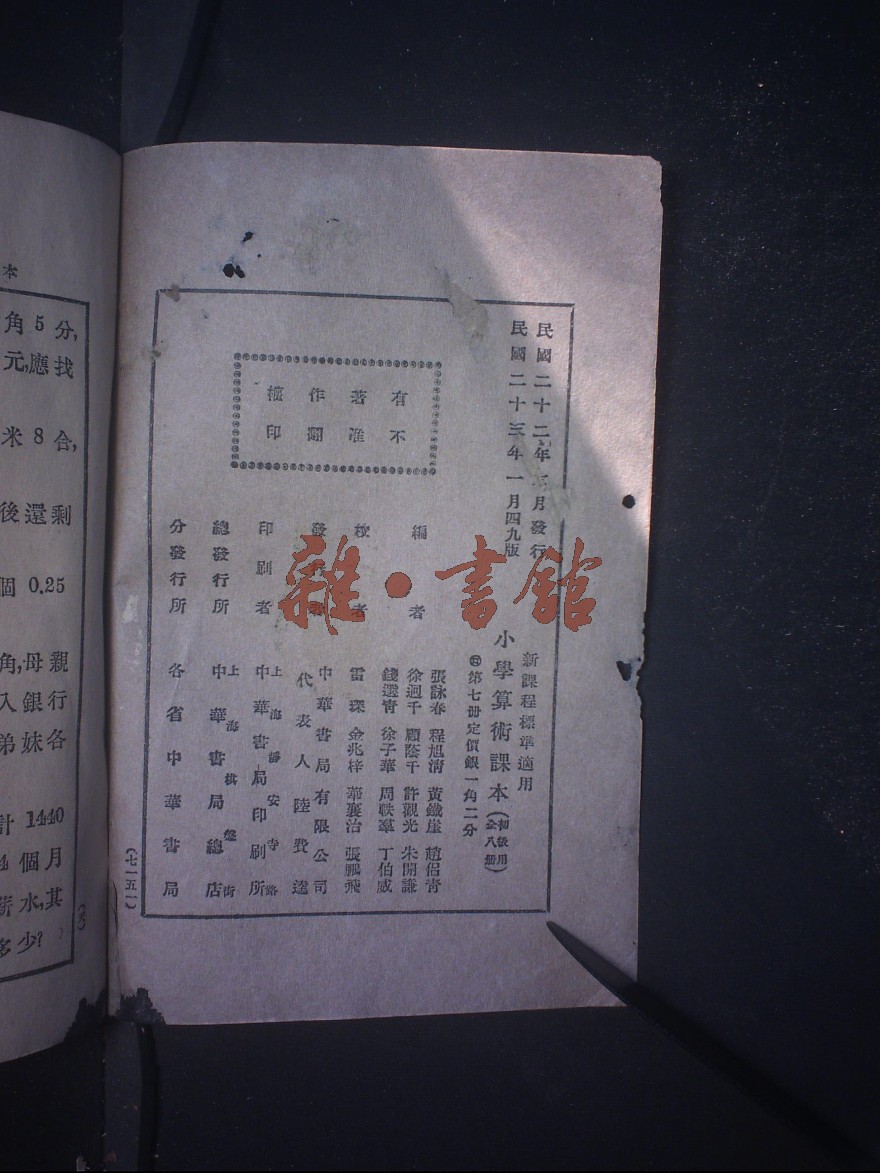 民國二十二年三月發行
民國二十三年一月四九版
新課程標準適用
小學算術課本(初級用全八册)
第七册定價銀一角二分
有不
著准
作翻
權印
編者
張詠春 程旭清 黃鐵崖 趙侶青
徐迥千 顧蔭千 許觀光 朱開謙
錢選青 徐子華 周耿羣 丁伯威
校者
雷琛 金兆梓 華襄治 張鵬飛
發行者
中華書局有限公司
代表人 陸費逵
印刷者
上海靜安寺路
中華書局印刷所
總發行所
上海棋盤街
中華書局總店
分發行所
各省中華書局
(七一五一)
雜·書館
本
角5分,
元,應找
米8合,
後還剩
個0.25
角,母親
入銀行
弟妹各
計1440
個月
薪水,其
多少?